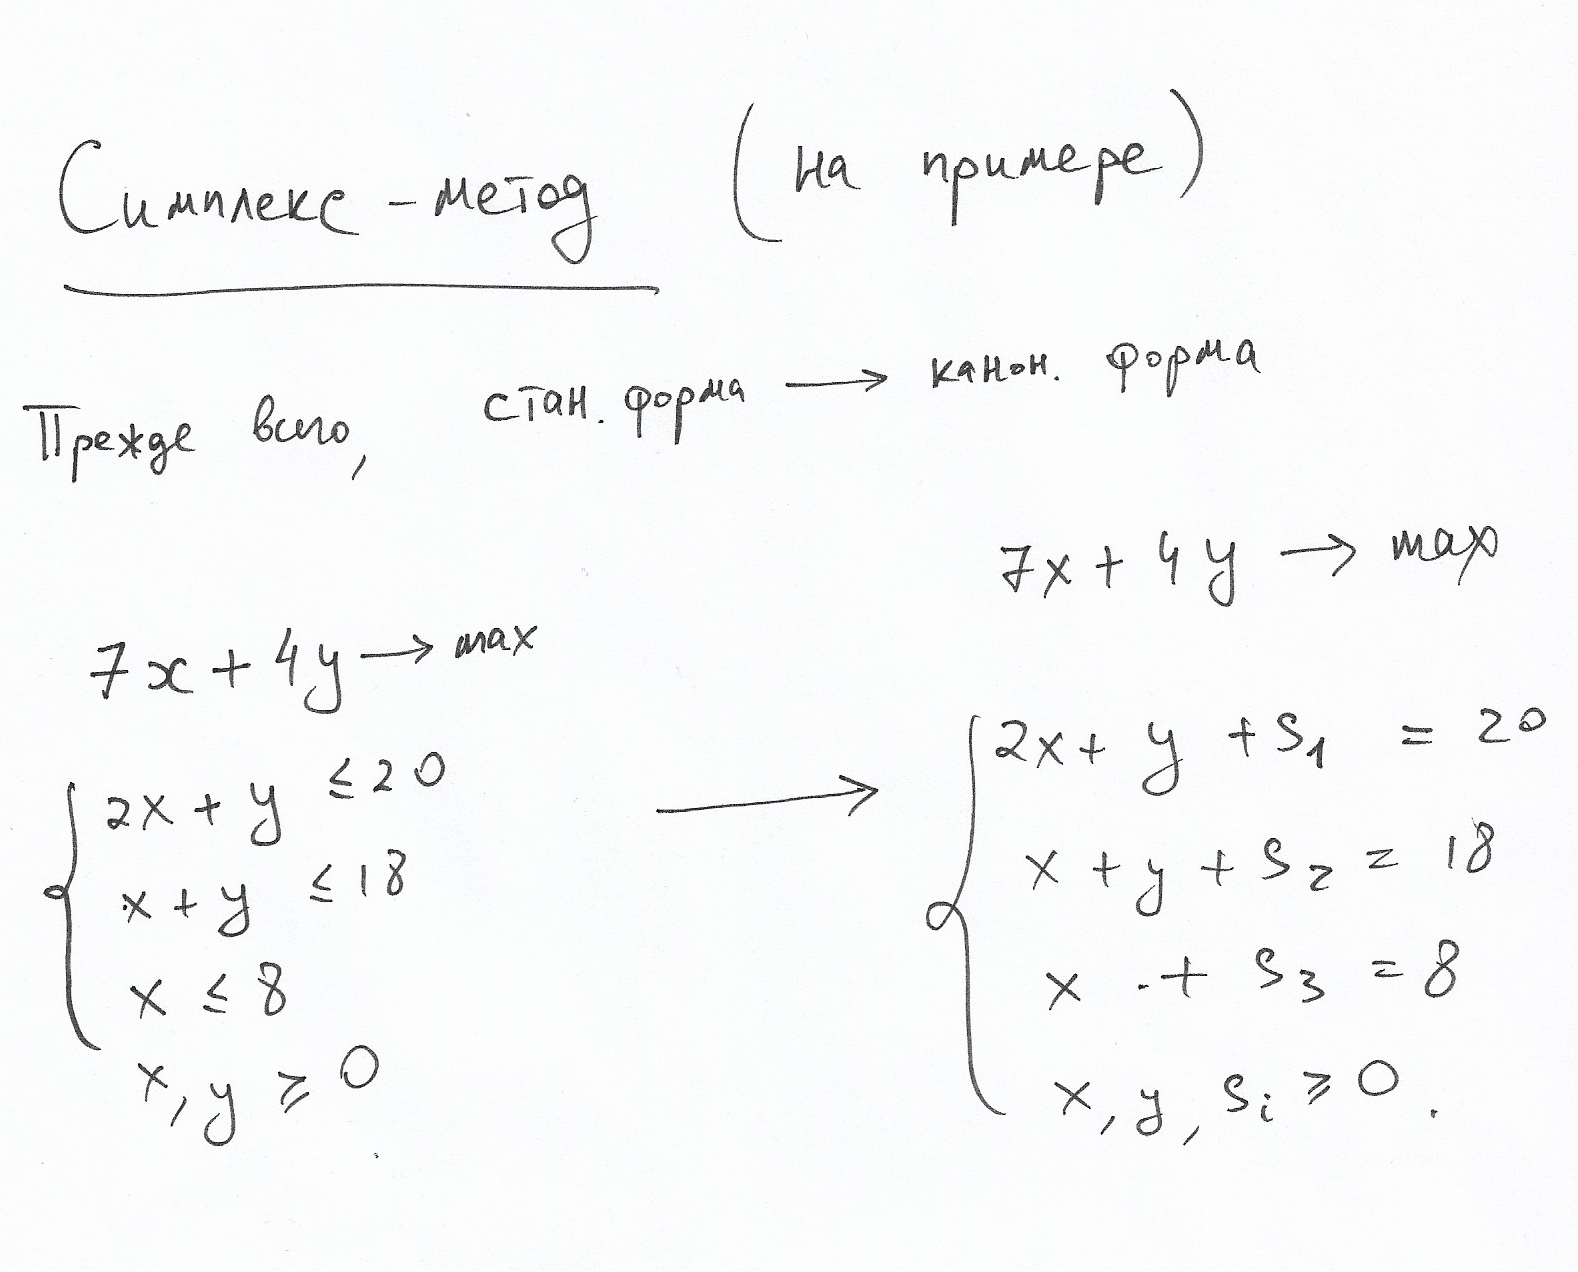 Симплекс-метод (на примере)
Прежде всего, стан. форма → канон. форма
7x + 4y → max
2x + y ≤ 20
x + y ≤ 18
x ≤ 8
x, y ≥ 0
→
7x + 4y → max
2x + y + S1 = 20
x + y + S2 = 18
x + S3 = 8
x, y, Si ≥ 0.